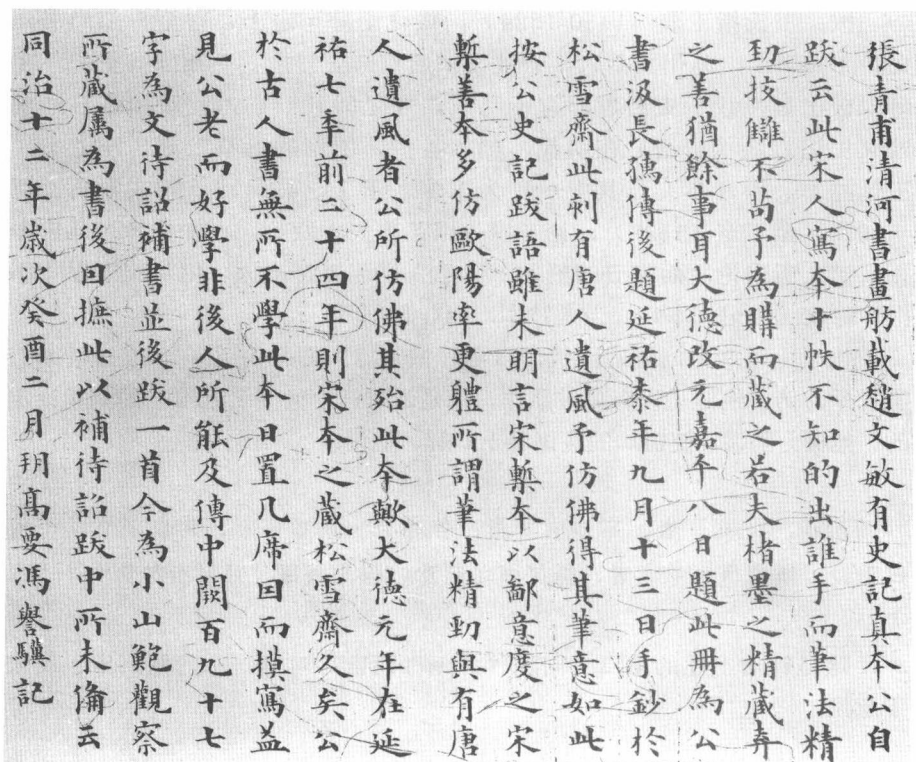 張青甫清河書畫舫載趙文敏有史記真本公自
跋云此宋人寫本十帙不知的出誰手而筆法精
勁技讎不苟予為購而藏之若夫楮墨之精藏弆
之善猶餘事耳大德改元嘉平八日題此冊為公
書汲長孺傳後題延祐柒年九月十三日手鈔於
松雪齋此刺有唐人遺風予仿佛得其筆意如此
按公史記跋語雖未明言宋槧本以鄙意度之宋
槧善本多仿歐陽率更體所謂筆法精勁與有唐
人遺風者公所仿佛其殆此本歟大德元年在延
祐七秊前二十四年則宋本之藏松雪齋久矣公
於古人書無所不學此本日置几席因而摸寫益
見公老而好學非後人所能及傳中闕百九十七
字為文待詔補書並後跋一首今為小山鮑觀察
所藏属為書後因摭此以補待詔跋中所未備云
同治十二年歲次癸酉二月玥高要馮譽驥記